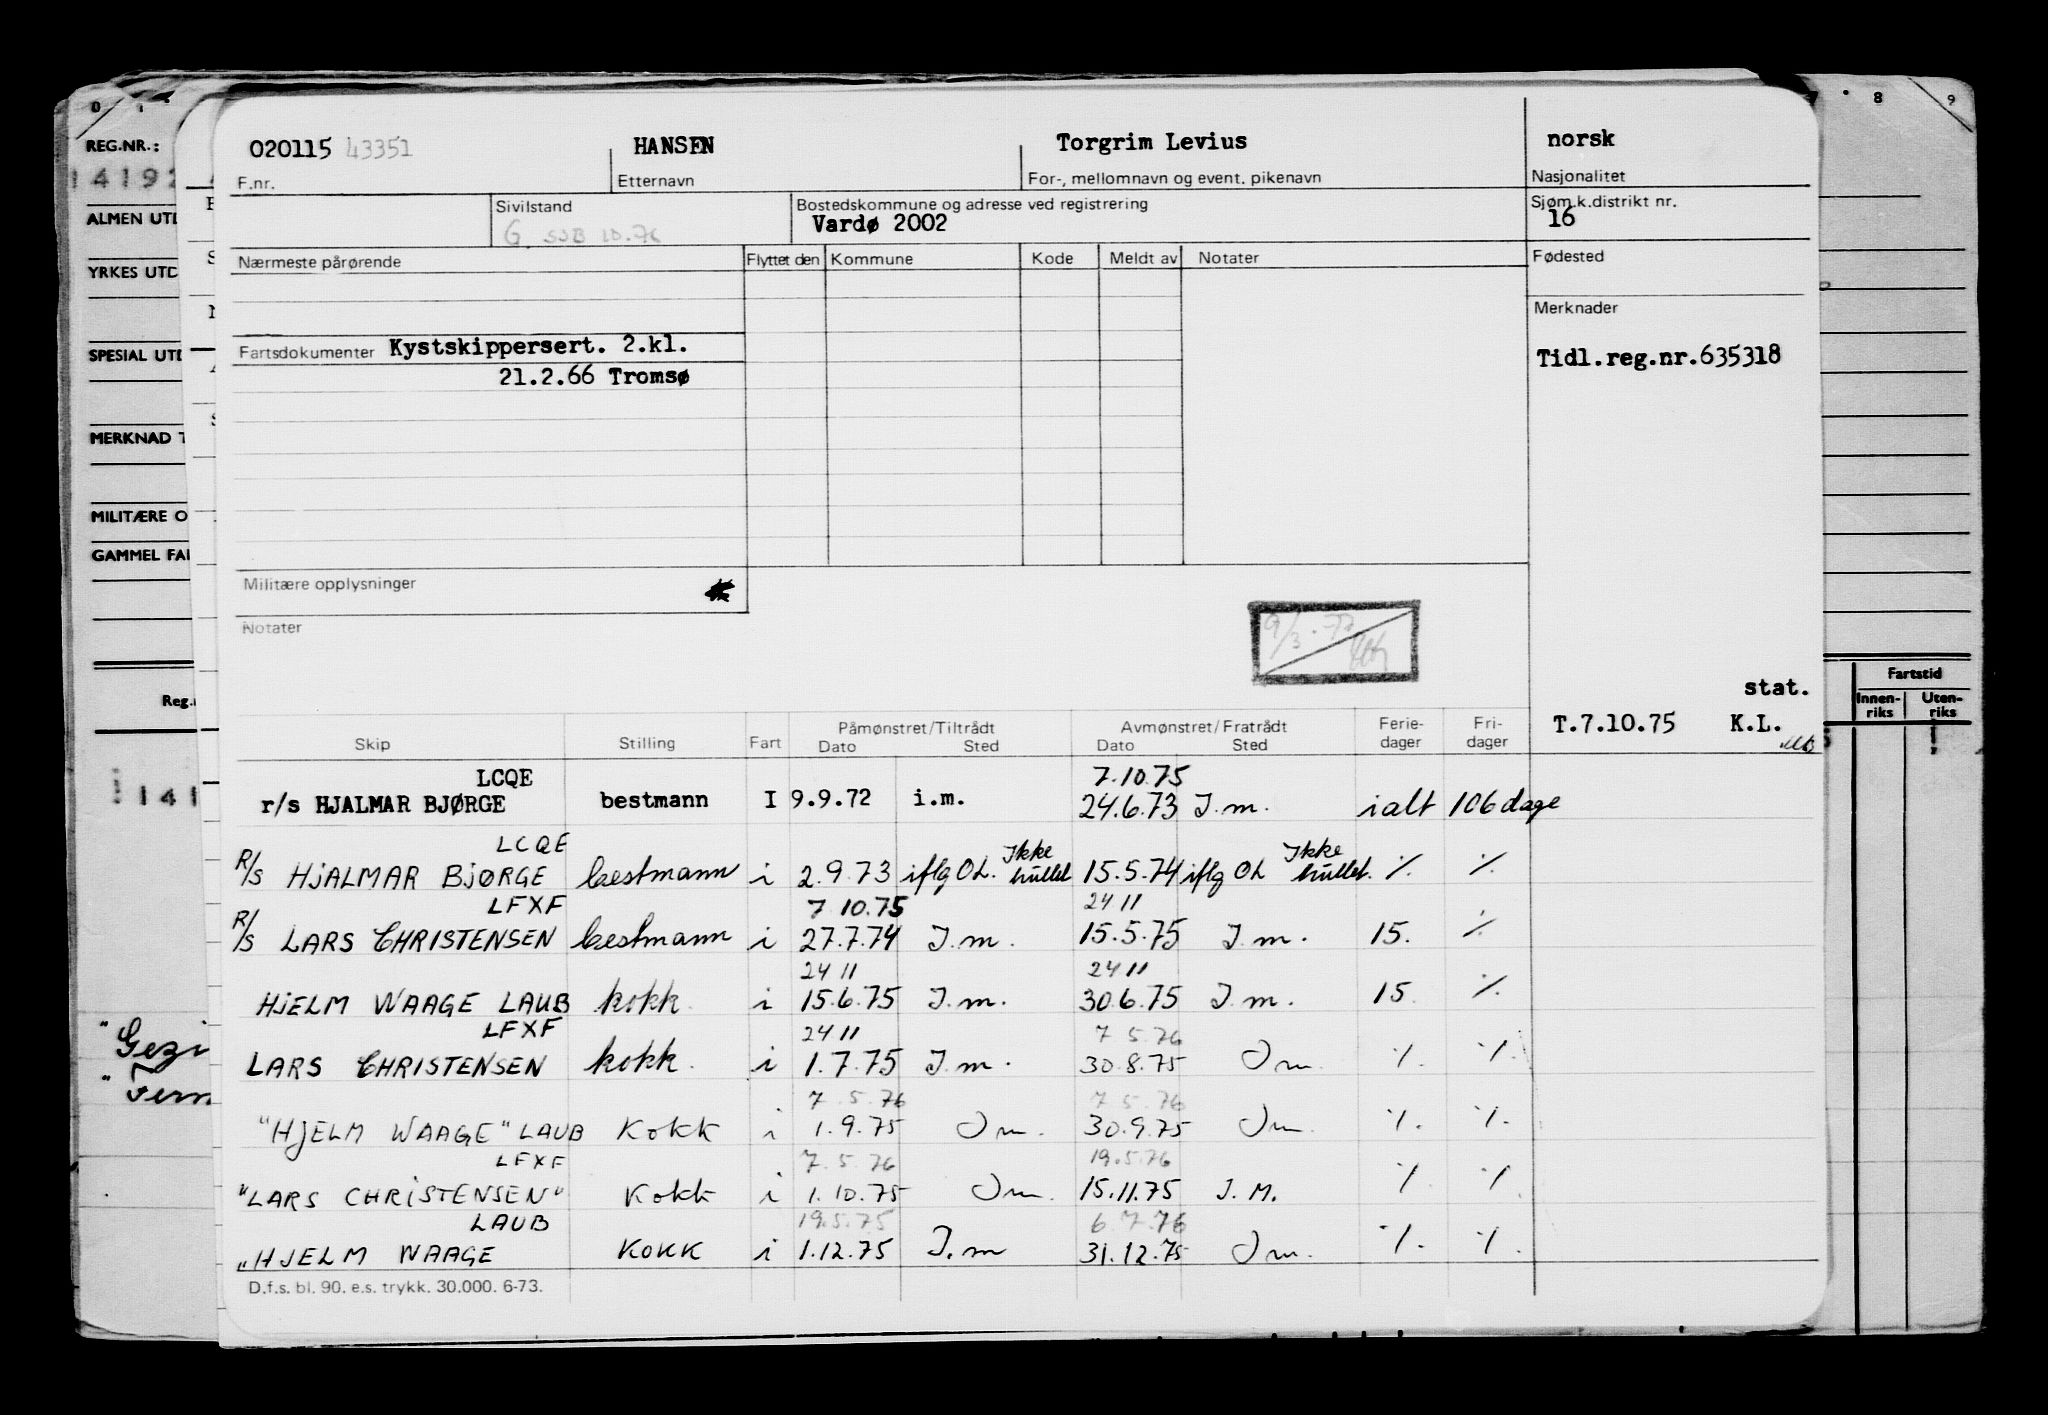 0 1 8 9
REG.NR.:
ALMEN UTD
YRKES UTD
SPESIAL UTD
MERKNAD T
MILITÆRE O
GAMMEL FAR
Reg.
141
"Gezi
020115 43351 HANSEN Torgrim Levius norsk
F.nr. Etternavn For-, mellomnavn og event. pikenavn Nasjonalitet
Sivilstand Bostedskommune og adresse ved registrering Sjøm.k.distrikt nr.
G SSB 10.76 Vardø 2002 16
Nærmeste pårørende Flyttet den Kommune Kode Meldt av Notater Fødested
Merknader
Fartsdokumenter Kystskippersert. 2.kl. Tidl.reg.nr.635318
21.2.66 Tromsø
Militære opplysninger
Notater
stat.
T.7.10.75 K.L.
Fartstid
Innen-riks Uten-riks
Påmønstret/Tiltrådt Avmønstret/Fratrådt Ferie- Fri-
Skip Stilling Fart Dato Sted Dato Sted dager dager
LCQE 7.10.75
r/s HJALMAR BJØRGE bestmann I 9.9.72 i.m. 24.6.73 I.m. ialt 106 dage
LCQE Ikke Ikke
R/s HJALMAR BJØRGE bestmann i 2.9.73 iflg OL. hullet 15.5.74 iflg OL hullet. ٪ ٪
LFXF 7 10.75 24 11
R/s LARS CHRISTENSEN bestmann i 27.7.74 I.m. 15.5.75 I.m. 15. ٪
24 11 24 11
HJELM WAAGE LAUB kokk. i 15.6.75 I.m. 30.6.75 I.m. 15. ٪
LFXF 24 11 7 5.76
LARS CHRISTENSEN kokk. i 1.7.75 I.m. 30.8.75 Im. ٪ ٪
7.5.76 7 5.76
"HJELM WAAGE" LAUB Kokk i 1.9.75 Im. 30.9.75 Im. ٪ ٪
LFXF 7.5.76 19.5.76
"LARS CHRISTENSEN" Kokk i 1.10.75 Im. 15.11.75 I.M. ٪ ٪
LAUB 19.5.75 6.7.76
"HJELM WAAGE KOKK i 1.12.75 I.m 31.12.75 Im. ٪ ٪
D.f.s. bl. 90. e.s. trykk. 30.000. 6-73.